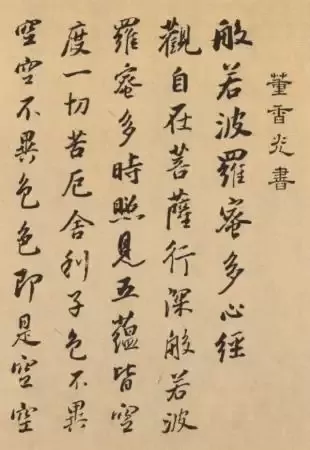 董香光書
般若波羅蜜多心經
觀自在菩薩行深般若波
羅蜜多時照見五蘊皆空
度一切苦厄舍利子色不異
空空不異色色即是空空